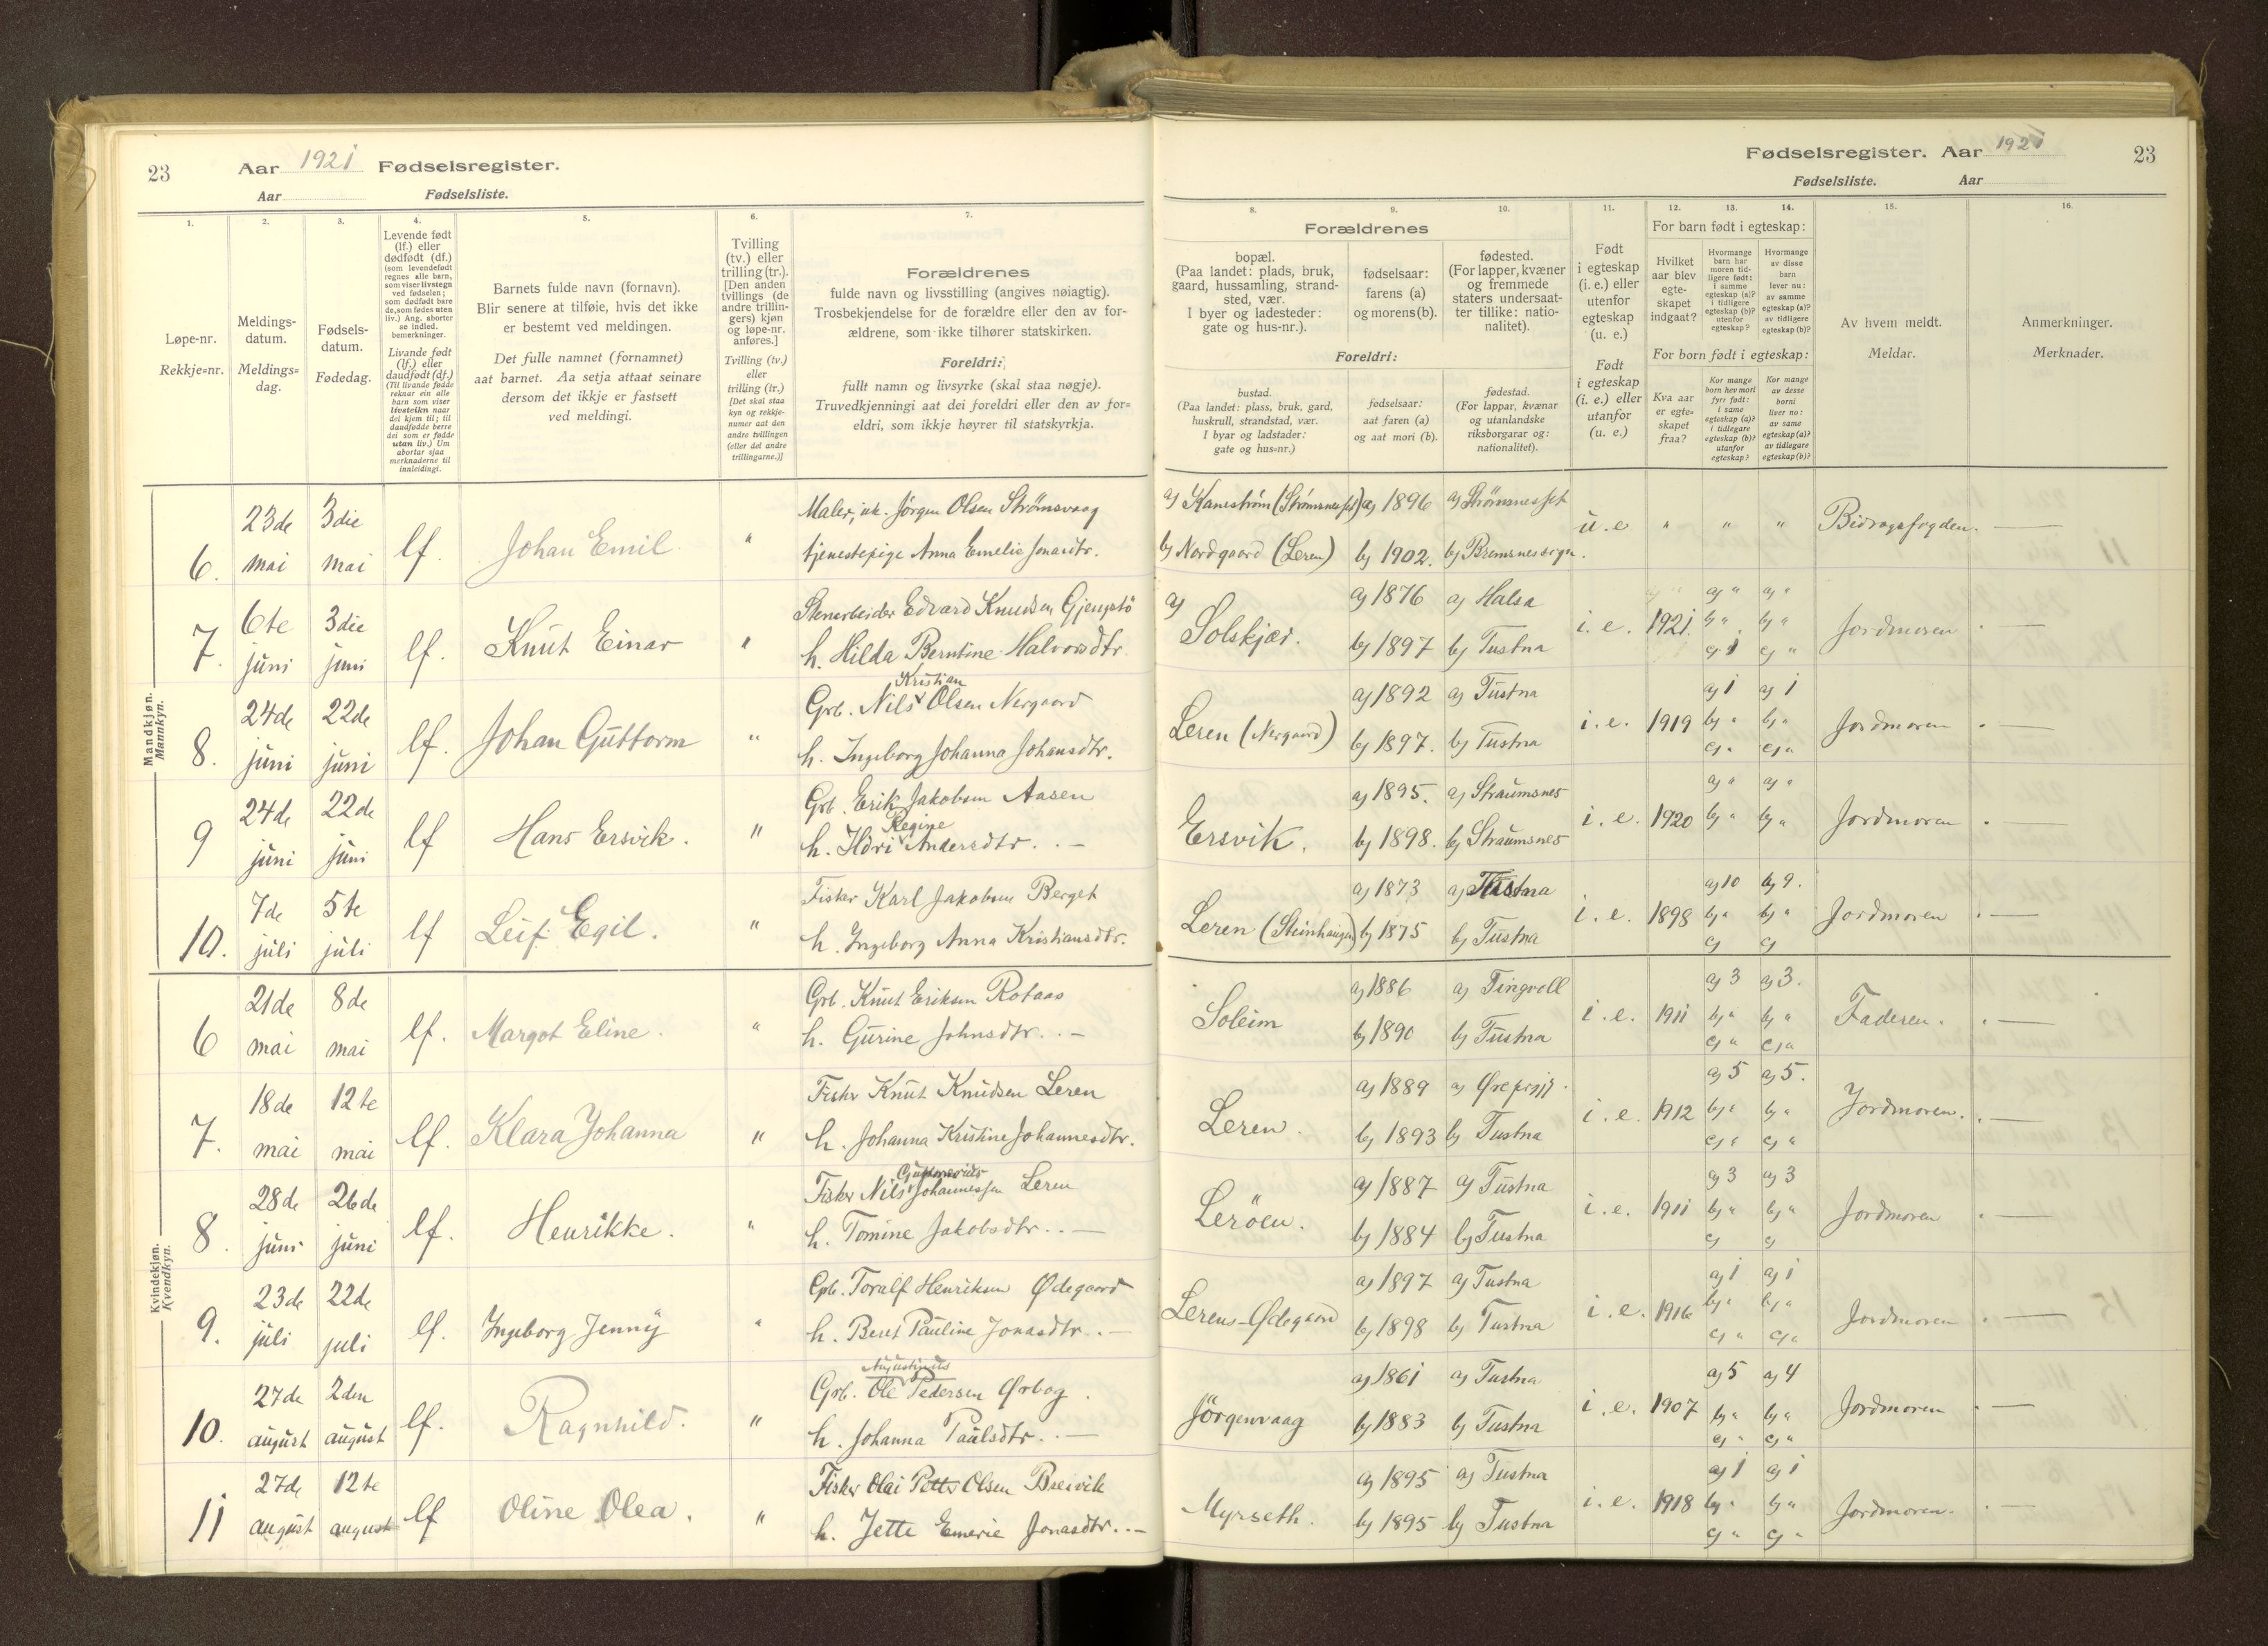 23 Aar 1921 Fødselsregister.
Aar Fødselsliste.
1.
2.
3.
4.
5.
6.
7.
Løpe-nr.
Rekkje=nr.
Meldings-
datum.
Meldings=
dag.
Fødsels-
datum.
Fødedag.
Levende født
(lf.) eller
dødfødt (df.)
(som levendefødt
regnes alle barn,
som viser livstegn
ved fødselen;
som dødfødt bare
de, som fødes uten
liv.) Ang. aborter
se indled.
bemerkninger.
Livande født
(lf.) eller
daudfødt (df.)
(Til livande fødde
reknar ein alle
barn som viser
livsteikn naar
dei kjem til; til
daudfødde berre
dei som er fødde
utan liv.) Um
abortar sjaa
merknaderne til
innleidingi.
Barnets fulde navn (fornavn).
Blir senere at tilføie, hvis det ikke
er bestemt ved meldingen.
Det fulle namnet (fornamnet)
aat barnet. Aa setja attaat seinare
dersom det ikkje er fastsett
ved meldingi.
Tvilling
(tv.) eller
trilling (tr.).
[Den anden
tvillings (de
andre trillin-
gers) kjøn
og løpe-nr.
anføres.]
Tvilling (tv.)
eller
trilling (tr.)
[Det skal staa
kyn og rekkje-
numer aat den
andre tvillingen
(eller dei andre
trillingarne.)]
Forældrenes
fulde navn og livsstilling (angives nøiagtig).
Trosbekjendelse for de forældre eller den av for-
ældrene, som ikke tilhører statskirken.
Foreldri:
fullt namn og livsyrke (skal staa nøgje).
Truvedkjenningi aat dei foreldri eller den av for=
eldri, som ikkje høyrer til statskyrkja.
Fødselsregister. Aar 1921 23
Fødselsliste. Aar
8.
9.
10.
11.
12.
13.
14.
15.
16.
Forældrenes
bopæl.
(Paa landet: plads, bruk,
gaard, hussamling, strand-
sted, vær.
I byer og ladesteder:
gate og hus-nr.).
fødselsaar:
farens (a)
og morens (b).
fødested.
(For lapper, kvæner
og fremmede
staters undersaat-
ter tillike: natio-
nalitet).
Foreldri:
bustad.
(Paa landet: plass, bruk, gard,
huskrull, strandstad, vær.
I byar og ladstader:
gate og hus=nr.)
fødselsaar:
aat faren (a)
og aat mori (b).
fødestad.
(For lappar, kvænar
og utanlandske
riksborgarar og:
nationalitet).
Født
i egteskap
(i. e.) eller
utenfor
egteskap
(u. e.)
Født
i egteskap
(i. e.) eller
utanfor
(u. e.)
For barn født i egteskap:
Hvilket
aar blev
egte-
skapet
indgaat?
Hvormange
barn har
moren tid-
ligere født:
i samme
egteskap (a)?
i tidligere
egteskap (b)?
utenfor
egteskap?
Hvormange
av disse
barn
lever nu:
av samme
egteskap (a)?
av tidligere
egteskap (b)?
For born født i egteskap:
Kva aar
er egte-
skapet
fraa?
Kor mange
born hev mori
fyrr født:
i same
egteskap (a)?
i tidlegare
egteskap (b)?
utanfor
egteskap?
Kor mange
av desse
borni
liver no:
av same
egteskap (a)?
av tidlegare
egteskap (b)?
Av hvem meldt.
Meldar.
Anmerkninger.
Merknader.
Mandkjøn.
Mannkyn.
6. 23de mai 3die mai lf. Johan Emil " Maler, uk. Jørgen Olsen Strømsvaag
tjenestepige Anna Emelie Jonasdtr.
a) Kanestrøm (Strømsneset) a) 1896 a) Strømsneset
b) Nordgaard (Leren) b) 1902. b) Bremsnes sogn. u. e " " " Bidragsfogden. —
7. 6te juni 3die juni lf. Knut Einar " Stenarbeider Edvard Knudsen Gjengstö
h. Hilda Berntine Halvorsdtr.
a) Solskjær. a) 1876 a) Halsa
b) 1897 b) Tustna i. e. 1921. a) " b) " c) 1 a) " b) " c) " Jordmoren . —
8. 24de juni 22de juni lf. Johan Guttorm " Grb. Nils Kristian Olsen Nergaard
h. Ingeborg Johanna Johansdtr.
Leren (Nergaard) a) 1892 a) Tustna
b) 1897. b) Tustna i. e. 1919 a) 1 b) " c) " a) 1 b) " c) " Jordmoren . —
9 24de juni 22de juni lf Hans Ersvik. " Grb. Erik Jakobsen Aasen
h. Ildri Regine Andersdtr. . —
Ersvik. a) 1895. a) Straumsnes
b) 1898. b) Straumsnes i. e. 1920 a) " b) " a) " b) " Jordmoren . —
10. 7de juli 5te juli lf Leif Egil. " Fisker Karl Jakobsen Berget
h. Ingeborg Anna Kristiansdtr.
Leren (Steinhaugen) a) 1873 a) Tustna
b) 1875 b) Tustna i. e. 1898 a) 10 b) " c) b) 9. b) " c) Jordmoren . —
Kvindekjøn.
Kvendkyn.
6 21de mai 8de mai lf. Margot Eline. " Grb. Knut Eriksen Rotaas
h. Gurine Johnsdtr. . —
Soleim a) 1886 a) Tingvoll
b) 1890 b) Tustna i. e. 1911 a) 3 b) " c) " a) 3. b) " c) " Faderen. . —
7. 18de mai 12te mai lf. Klara Johanna " Fisker Knut Knudsen Leren
h. Johanna Kristine Johannesdtr.
Leren. a) 1889 a) Øre prgj.
b) 1893 b) Tustna i. e. 1912 a) 5 b) " c) " a) 5. b) " c) " Jordmoren. . —
8. 28de juni 26de juni lf. Henrikke. " Fisker Nils Johannessen Leren
h. Tomine Jakobsdtr. . —
Leröen. a) 1887 a) Tustna
b) 1884 b) Tustna i. e. 1911 a) 3 b) " c) a) 3 b) " c) Jordmoren . —
9. 23de juli 22de juli lf. Ingeborg Jenny " Grb. Toralf Henriksen Ødegaard
h. Berit Pauline Jonasdtr. . —
Lerens-Ødegaard a) 1897 a) Tustna
b) 1898 b) Tustna i. e. 1916 a) 1 b) " c) " a) 1 b) " c) " Jordmoren . —
10. 27de august 2den august lf. Ragnhild. " Grb. Ole Augustinus Pedersen Ørbog.
h. Johanna Paulsdtr. . —
Jörgenvaag a) 1861 a) Tustna
b) 1883 b) Tustna i. e. 1907 a) 5 b) " c) " a) 4 b) " c) " Jordmoren . —
11 27de august 12te august lf Oline Olea. " Fisker Olai Petter Olsen Breivik
h. Jette Emerie Jonasdtr. . —
Myrseth. a) 1895 a) Tustna
b) 1895 b) Tustna i. e. 1918 a) 1 b) " c) " a) 1 b) " c) " Jordmoren. . —